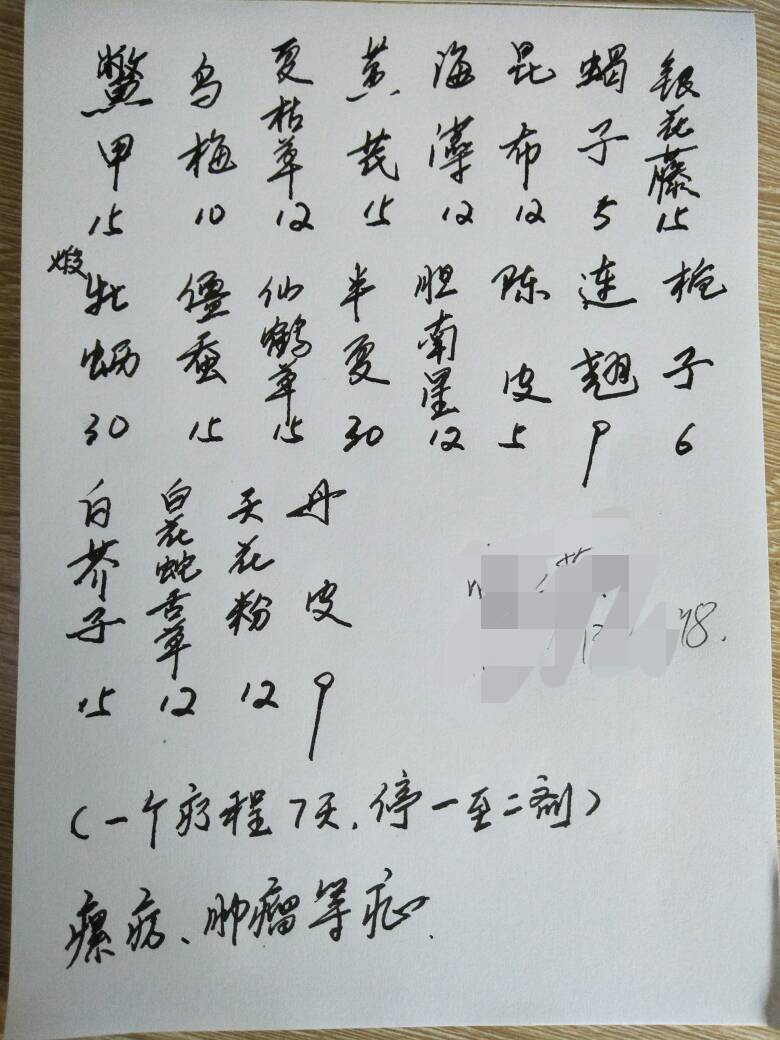 鳖甲15
乌梅10
夏枯草12
黄芪15
海藻12
昆布12
蝎子5
银花藤15
煅牡蛎30
僵蚕15
仙鹤草15
半夏30
胆南星12
陈皮5
连翘9
栀子6
白芥子15
白花蛇舌草12
天花粉12
丹皮9
(一个疗程7天,停一至二剂)
瘰疬、肿瘤等症.